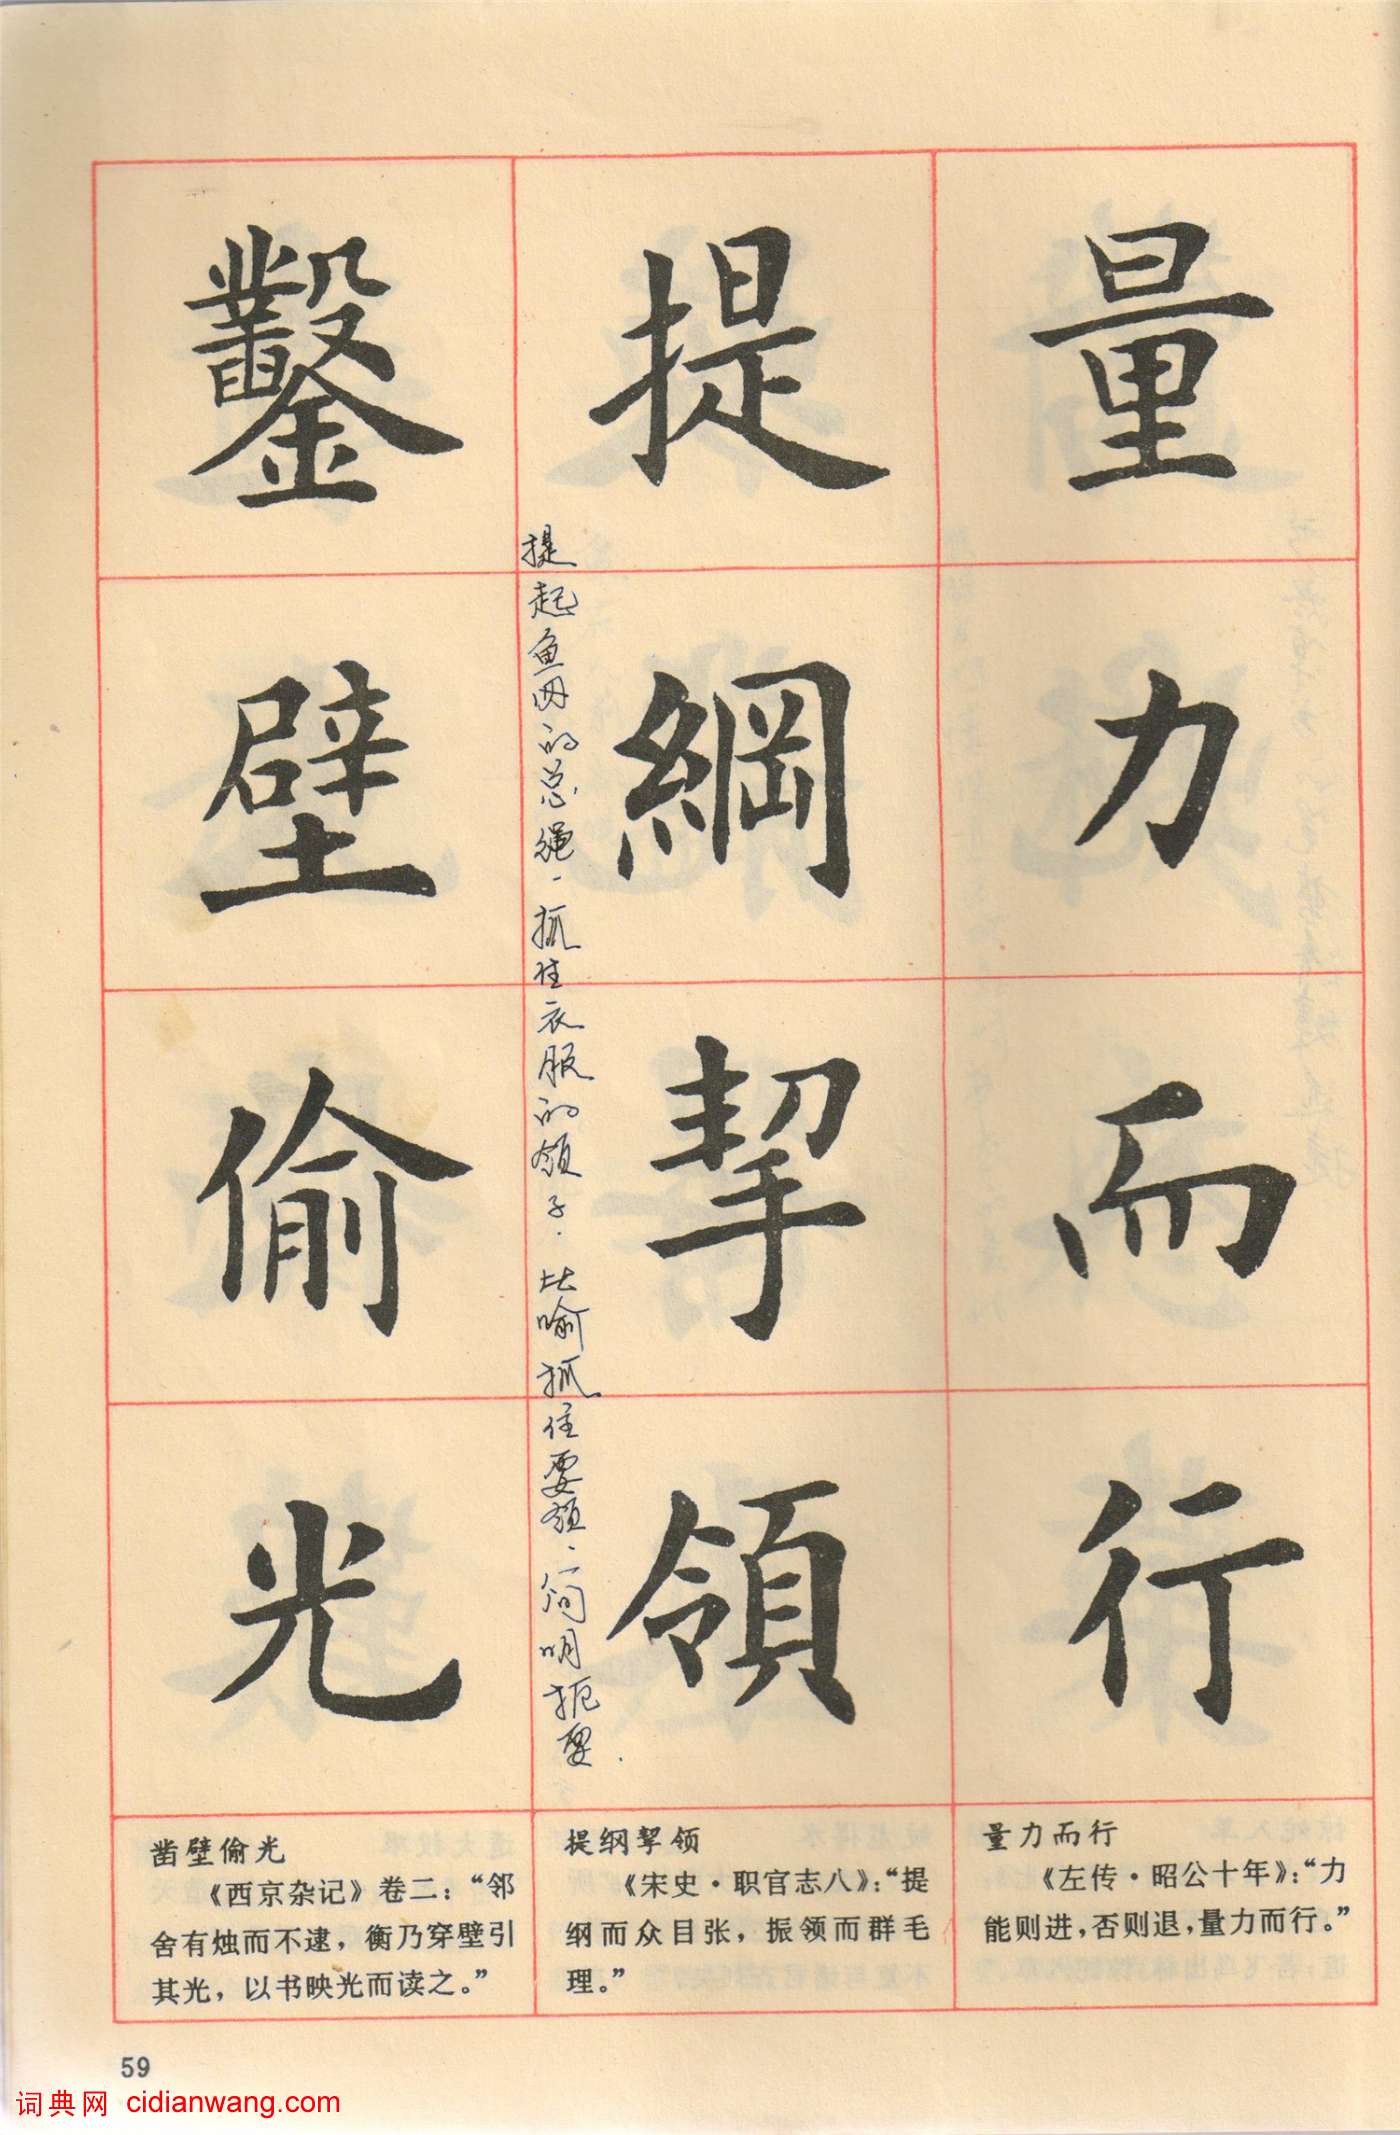 量力而行
提綱挈領
鑿壁偷光
提起鱼网的总绳，抓住衣服的领子．比喻抓住要领，简明扼要．
量力而行
《左传·昭公十年》：“力
能则进，否则退，量力而行。”
提纲挈领
《宋史·职官志八》：“提
纲而众目张，振领而群毛
理。”
凿壁偷光
《西京杂记》卷二：“邻
舍有烛而不逮，衡乃穿壁引
其光，以书映光而读之。”
59
词典网 cidianwang.com